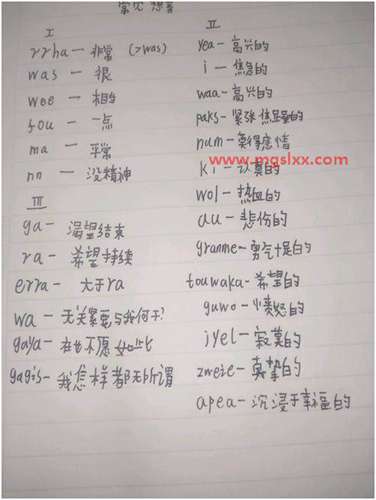 常见想音
I
rrha — 非常 (>was)
was — 很
wee — 相当
fou — 一点
ma — 平常
nn — 没精神
III
ga — 渴望结束
ra — 希望持续
erra — 大于ra
wa — 无关紧要与我何干?
gaya — 在也不愿如此
gagis — 我怎样都无所谓
II
yea — 高兴的
i — 焦急的
waa — 高兴的
paks — 紧张焦虑的
num — 莫得感情
www.mgslxx.com
ki — 认真的
wol — 热血的
au — 悲伤的
granme — 勇气十足的
touwaka — 希望的
guwo — 愤怒的
iyel — 寂寞的
zweie — 真挚的
apea — 沉浸于幸福的